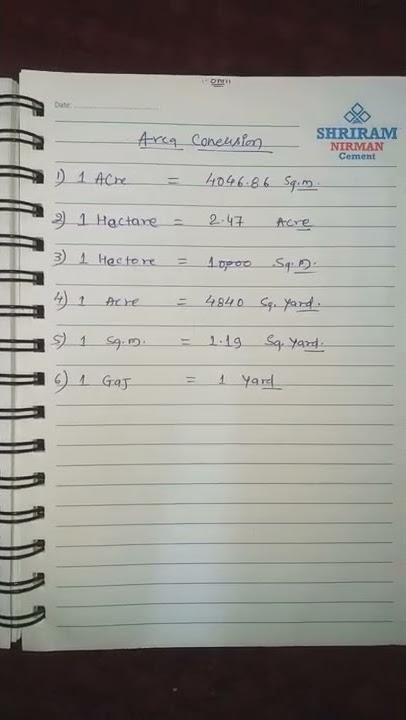 Date:
SHRIRAM
NIRMAN
Cement
Area Conversion
1) 1 Acre = 4046.86 Sq.m.
2) 1 Hactare = 2.47 Acre
3) 1 Hectore = 10,000 Sq.m.
4) 1 Acre = 4840 Sq. Yard.
5) 1 Sq.m. = 1.19 Sq. Yard.
6) 1 Gaj = 1 Yard